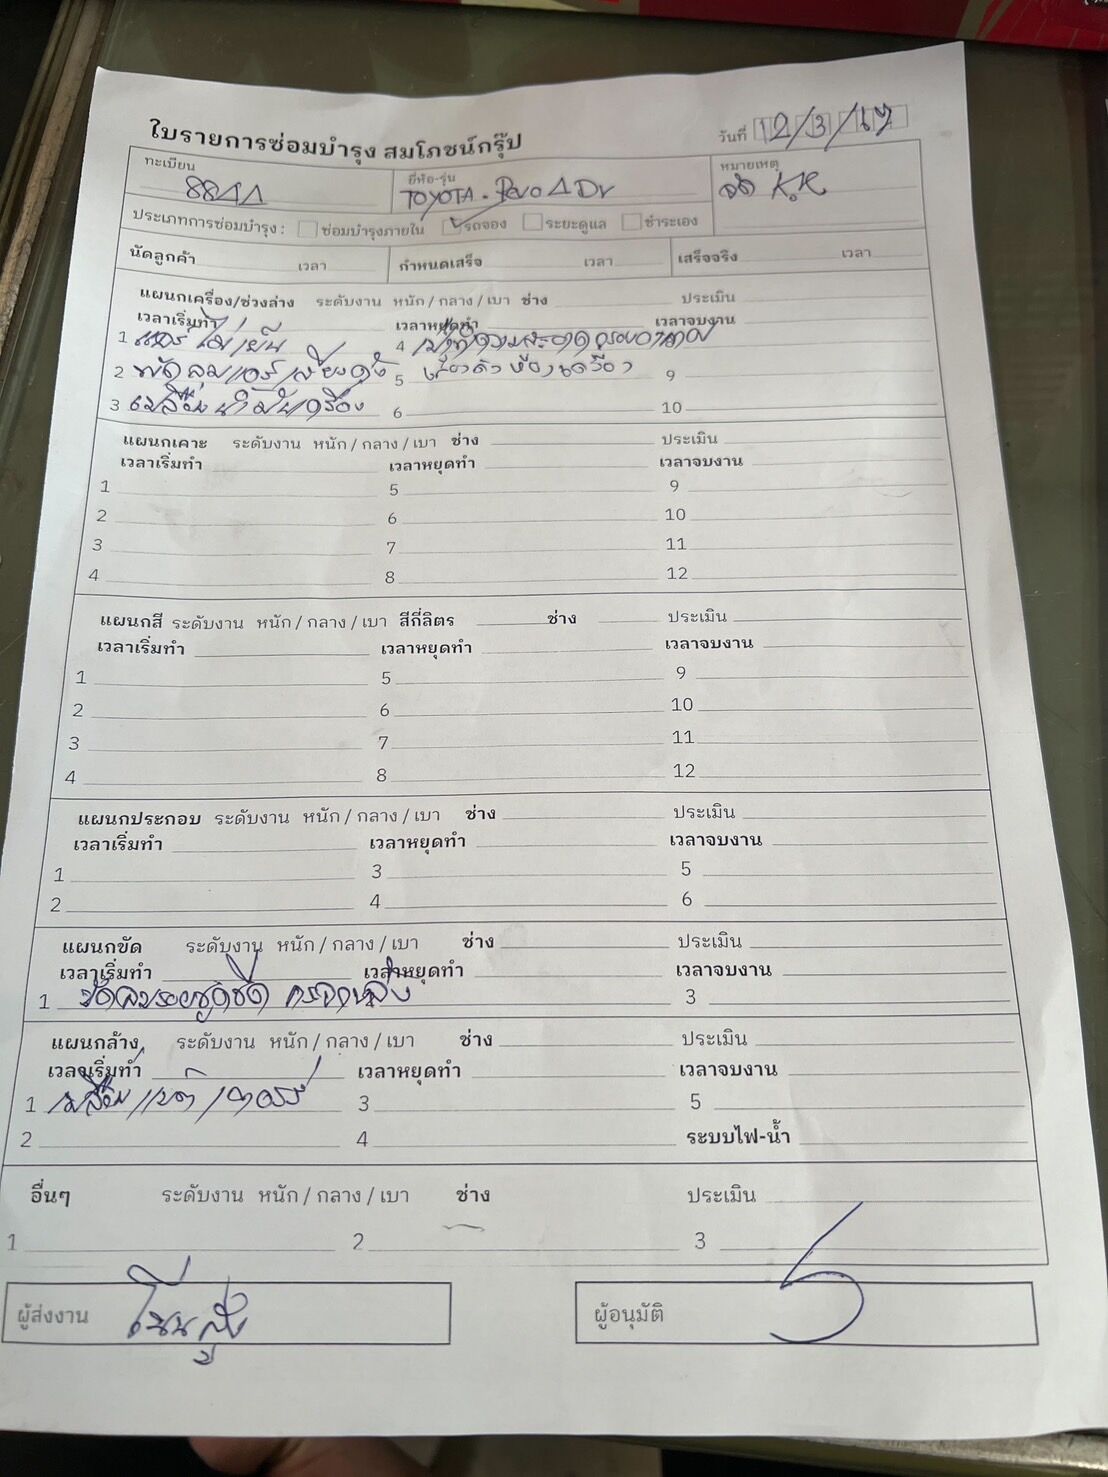 ใบรายการซ่อมบำรุง สมโภชน์กรุ๊ป
วันที่ 12/3/67
ทะเบียน ยี่ห้อ-รุ่น หมายเหตุ
8844 TOYOTA - Revo 4 Dr K.R
ประเภทการซ่อมบำรุง : ซ่อมบำรุงภายใน รถจอง ระยะดูแล ชำระเอง
นัดลูกค้า เวลา กำหนดเสร็จ เวลา เสร็จจริง เวลา
แผนกเครื่อง/ช่วงล่าง ระดับงาน หนัก / กลาง / เบา ช่าง ประเมิน
เวลาเริ่มทำ เวลาหยุดทำ เวลาจบงาน
1 แอร์ไม่เย็น 4 ทำความสะอาด
2 พัดลมแอร์เสียงดัง 5 ห้องเครื่อง 9
3 เปลี่ยนน้ำมันเครื่อง 6 10
แผนกเคาะ ระดับงาน หนัก / กลาง / เบา ช่าง ประเมิน
เวลาเริ่มทำ เวลาหยุดทำ เวลาจบงาน
1 5 9
2 6 10
3 7 11
4 8 12
แผนกสี ระดับงาน หนัก / กลาง / เบา สีกี่ลิตร ช่าง ประเมิน
เวลาเริ่มทำ เวลาหยุดทำ เวลาจบงาน
1 5 9
2 6 10
3 7 11
4 8 12
แผนกประกอบ ระดับงาน หนัก / กลาง / เบา ช่าง ประเมิน
เวลาเริ่มทำ เวลาหยุดทำ เวลาจบงาน
1 3 5
2 4 6
แผนกขัด ระดับงาน หนัก / กลาง / เบา ช่าง ประเมิน
เวลาเริ่มทำ เวลาหยุดทำ เวลาจบงาน
1 ขัดลบรอยขูดขีด กระจกหลัง 3
แผนกล้าง ระดับงาน หนัก / กลาง / เบา ช่าง ประเมิน
เวลาเริ่มทำ เวลาหยุดทำ เวลาจบงาน
1 เปลี่ยนแบตเตอรี่ 3 5
2 4 ระบบไฟ-น้ำ
อื่นๆ ระดับงาน หนัก / กลาง / เบา ช่าง ประเมิน
1 2 3
ผู้ส่งงาน ผู้อนุมัติ